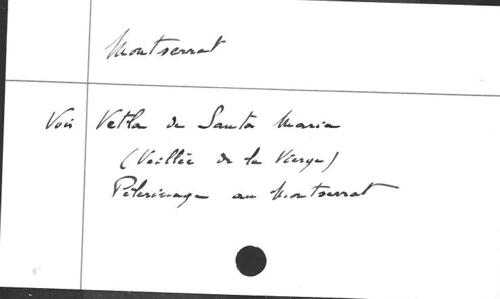 Montserrat
Voir Vetlla de Santa Maria
(Veillée de la Vierge)
Pèlerinage au Montserrat